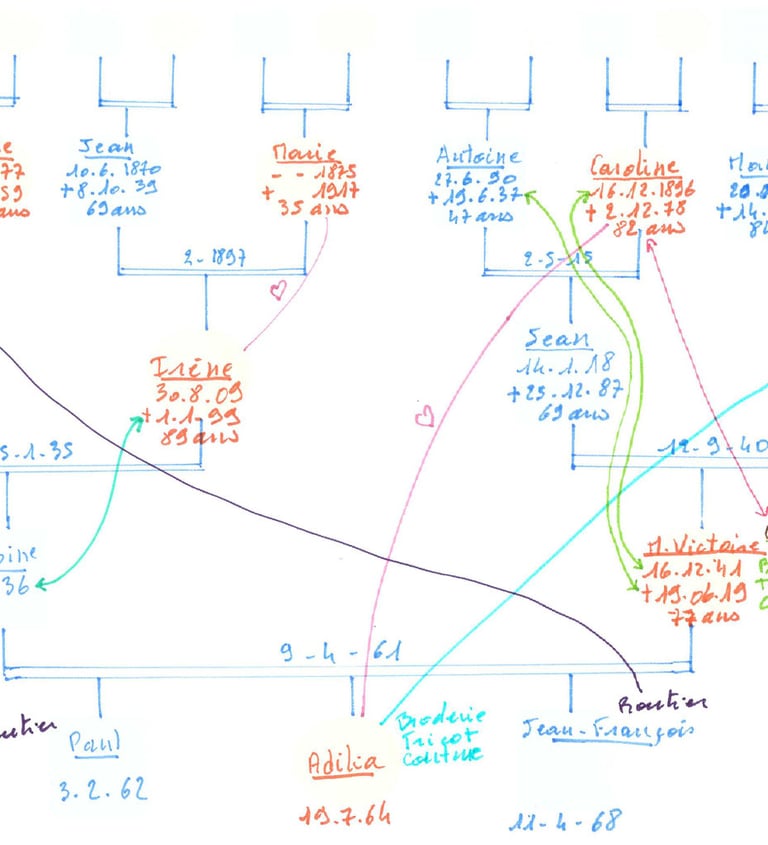 e
77
59
ans
Jean
10.6.1870
+8.10.39
69 ans
Marie
- - 1875
+ 1917
35 ans
Antoine
27.6.90
+19.6.37
47 ans
Caroline
16.12.1896
+ 2.12.78
82 ans
Ma
20.
+14.
8
2-1897
2-5-15
Irène
30.8.09
+1.1.99
89 ans
Jean
14.1.18
+25.12.87
69 ans
5-1-35
12-9-40
oine
36
M.Victoire
16.12.41
+19.06.19
77 ans
9-4-61
utier
Paul
3.2.62
Adilia
19.7.64
Broderie
Tricot
Couture
Routier
Jean-François
11-4-68